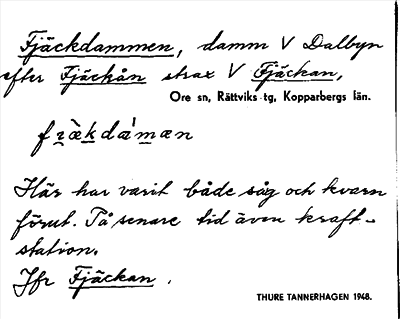 Fjäckdammen, damm V Dalbyn
efter Fjäckån strax V Fjäckan,
Ore sn, Rättviks tg, Kopparbergs län.
fi̯ä̀kdámæn
Här har varit både såg och kvarn
förut. På senare tid även kraft-
station.
Jfr Fjäckan.
THURE TANNERHAGEN 1948.